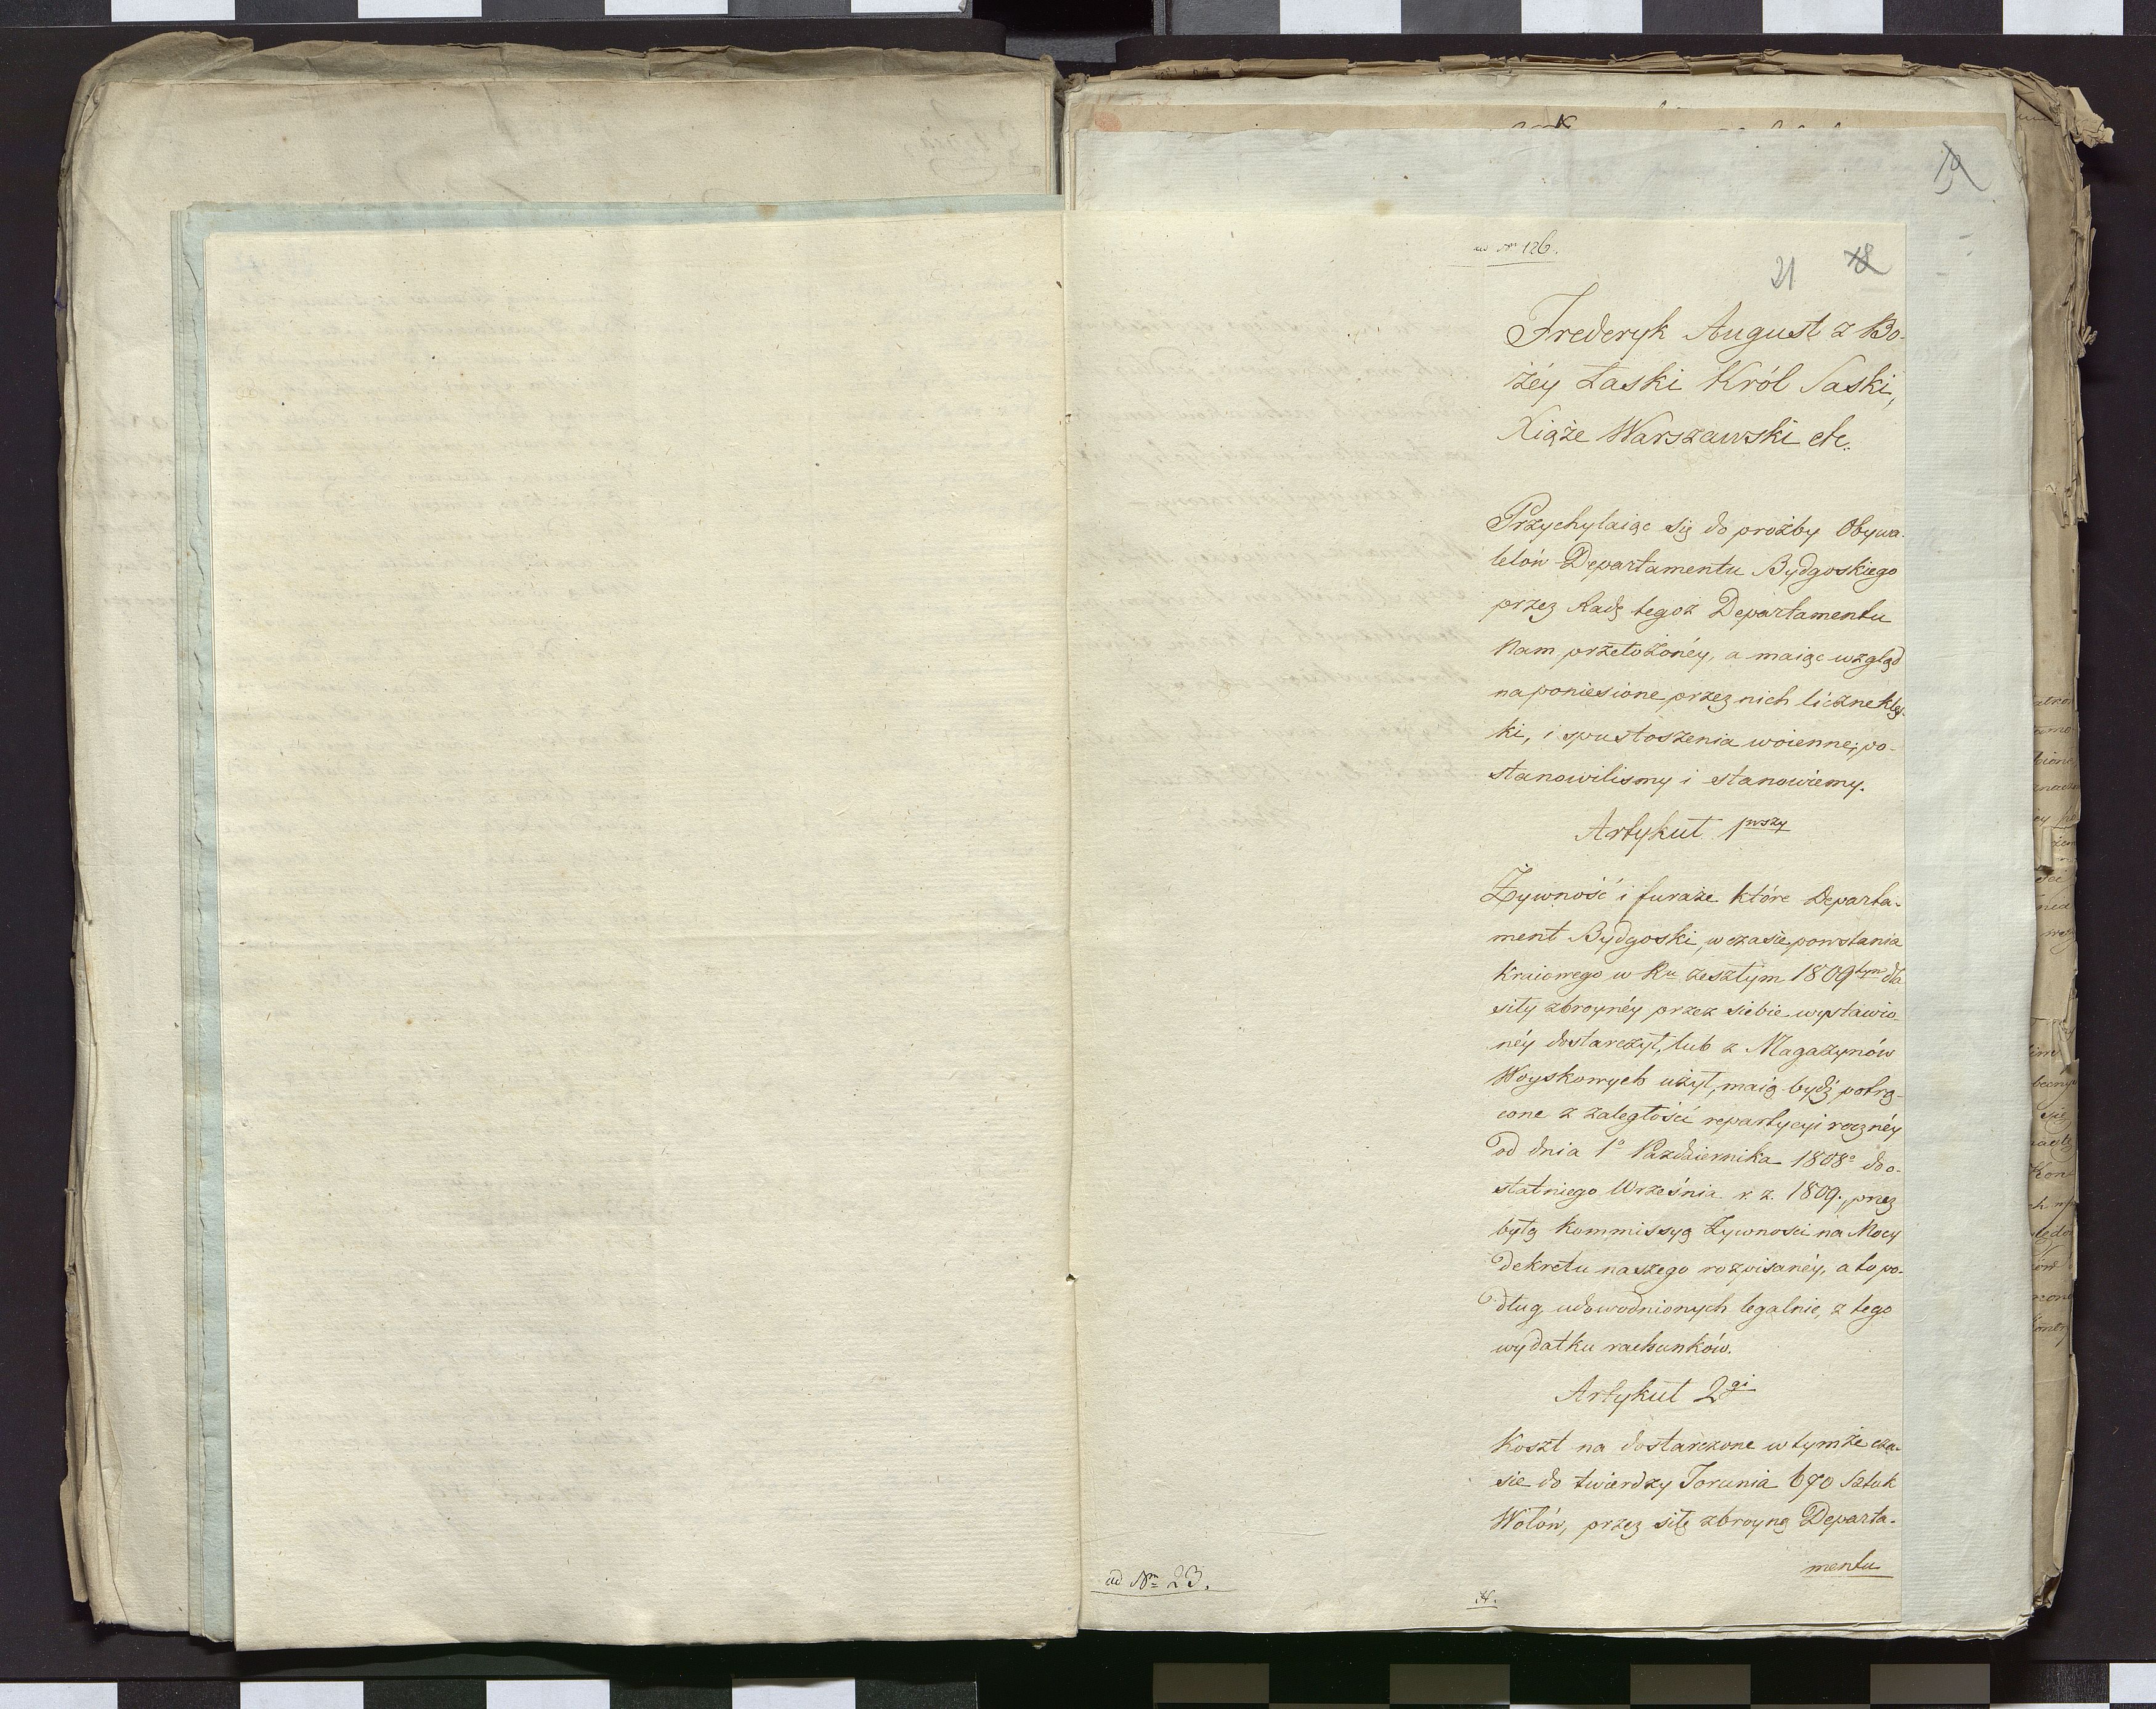 19
ad Nrm 126.
21 18
Frederyk August z Bo-
żéy Łaski Król Saski,
Xiąże Warszawski etc.
Przychylaiąc się do proźby Obywa-
telów Departamentu Bydgoskiego
przez Radę tegoż Departamentu
Nam przełożonéy, a maiąc wzgląd
na poniesione przez nich liczne klęs-
ki, i spustoszenia woienne; po-
stanowilismy i stanowiemy.
Artykuł 1wszy
Żywność i furaże które Departa-
ment Bydgoski, w czasie powstania
kraiowego w Ru zeszłym 1809tym dla
siły zbroynéy przez siebie wystawio-
néy dostarczył, lub z Magazynów
Woyskowych użył, maią bydź potrą-
cone z zaległości repartycyi rocznéy
od dnia 1o Października 1808o do o-
statniego Września r. z. 1809., przez
byłą Kommissyą Żywności na Mocy
Dekretu naszego rozpisanéy, a to po-
dług udowodnionych legalnie, z tego
wydatku rachunków.
Artykuł 2gi
Koszt na dostarczone w tymże cza-
sie do twierdzy Torunia 670 Sztuk
Wołów, przez siłę zbroyną Departa-
mentu
ad Nrm 23.